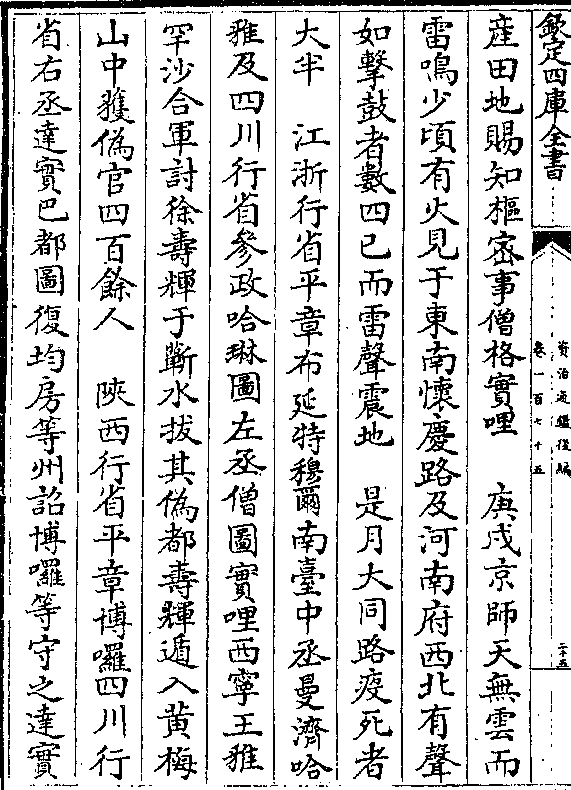 欽定四庫全書
資治通鑑後編
卷一百七十五
二十五
産田地賜知樞宻事僧格實哩　庚戌京師天無雲而
雷鳴少頃有火見于東南懷慶路及河南府西北有聲
如擊鼓者數四已而雷聲震地　是月大同路疫死者
大半　江浙行省平章布延特穆爾南臺中丞曼濟哈
雅及四川行省參政哈琳圖左丞僧圖實哩西寧王雅
罕沙合軍討徐壽輝于蘄水拔其偽都壽輝遁入黄梅
山中獲偽官四百餘人　陝西行省平章博囉四川行
省右丞達實巴都圖復均房等州詔博囉等守之達實